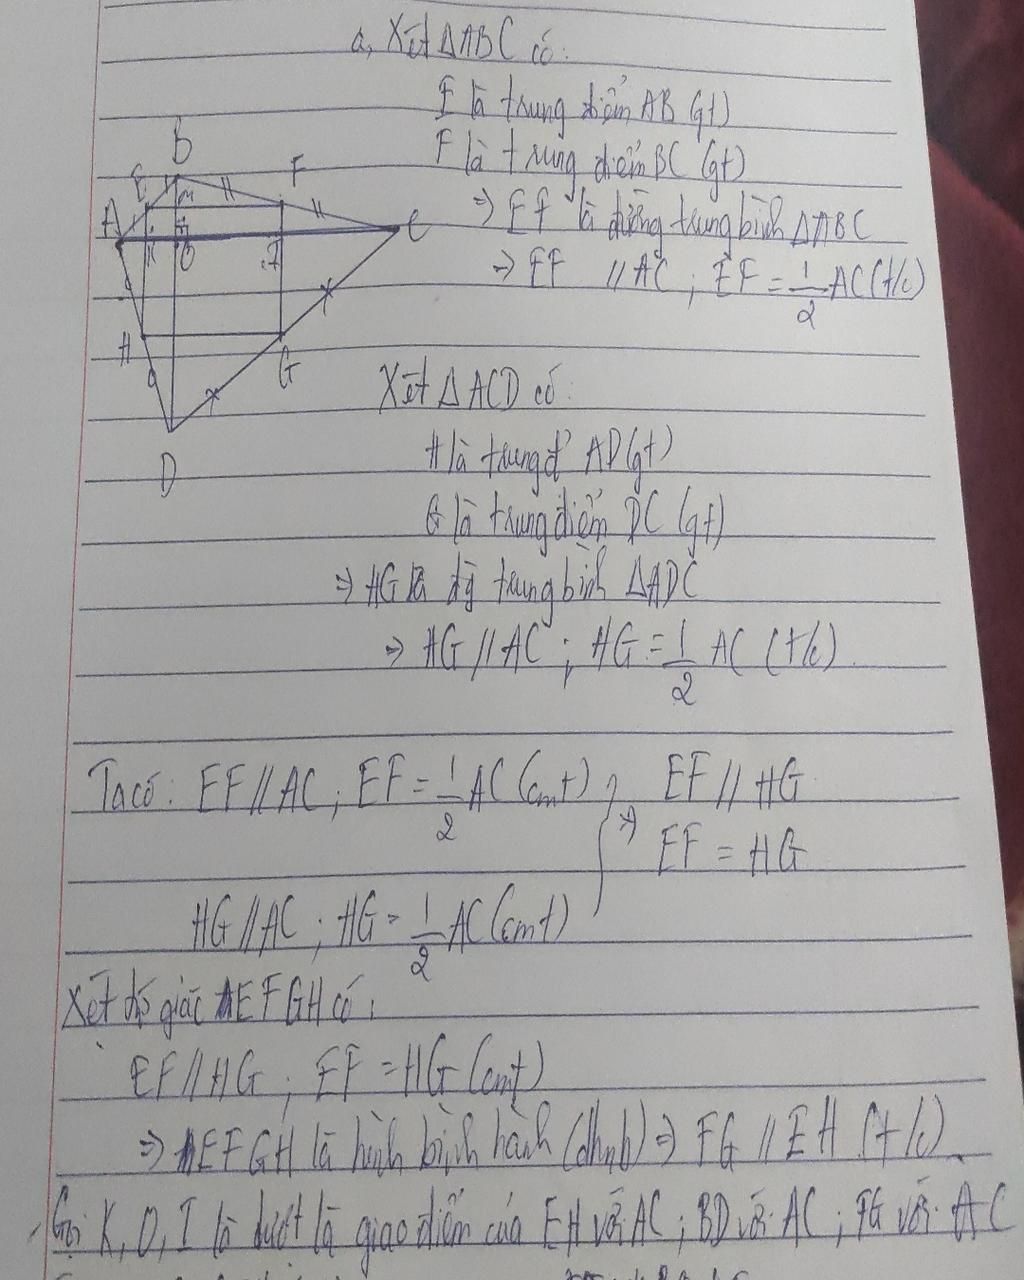 a, Xét ΔABC có:
E là trung điểm AB (gt)
F là trung điểm BC (gt)
⇒ EF là đường trung bình ΔABC
⇒ EF // AC ; EF = 1/2 AC (t/c)
B
E
F
A
M
C
K
O
I
H
G
D
Xét ΔACD có:
H là trung đ' AD (gt)
G là trung điểm DC (gt)
⇒ HG là đg trung bình ΔADC
⇒ HG // AC ; HG = 1/2 AC (t/c)
Ta có: EF // AC ; EF = 1/2 AC (cmt) } ⇒ EF // HG
EF = HG
HG // AC ; HG = 1/2 AC (cmt)
Xét tứ giác EFGH có:
EF // HG ; EF = HG (cmt)
⇒ EFGH là hình bình hành (dhnb) ⇒ FG // EH (t/c)
Gọi K, O, I là lượt là giao điểm của EH với AC ; BD với AC ; FG với AC